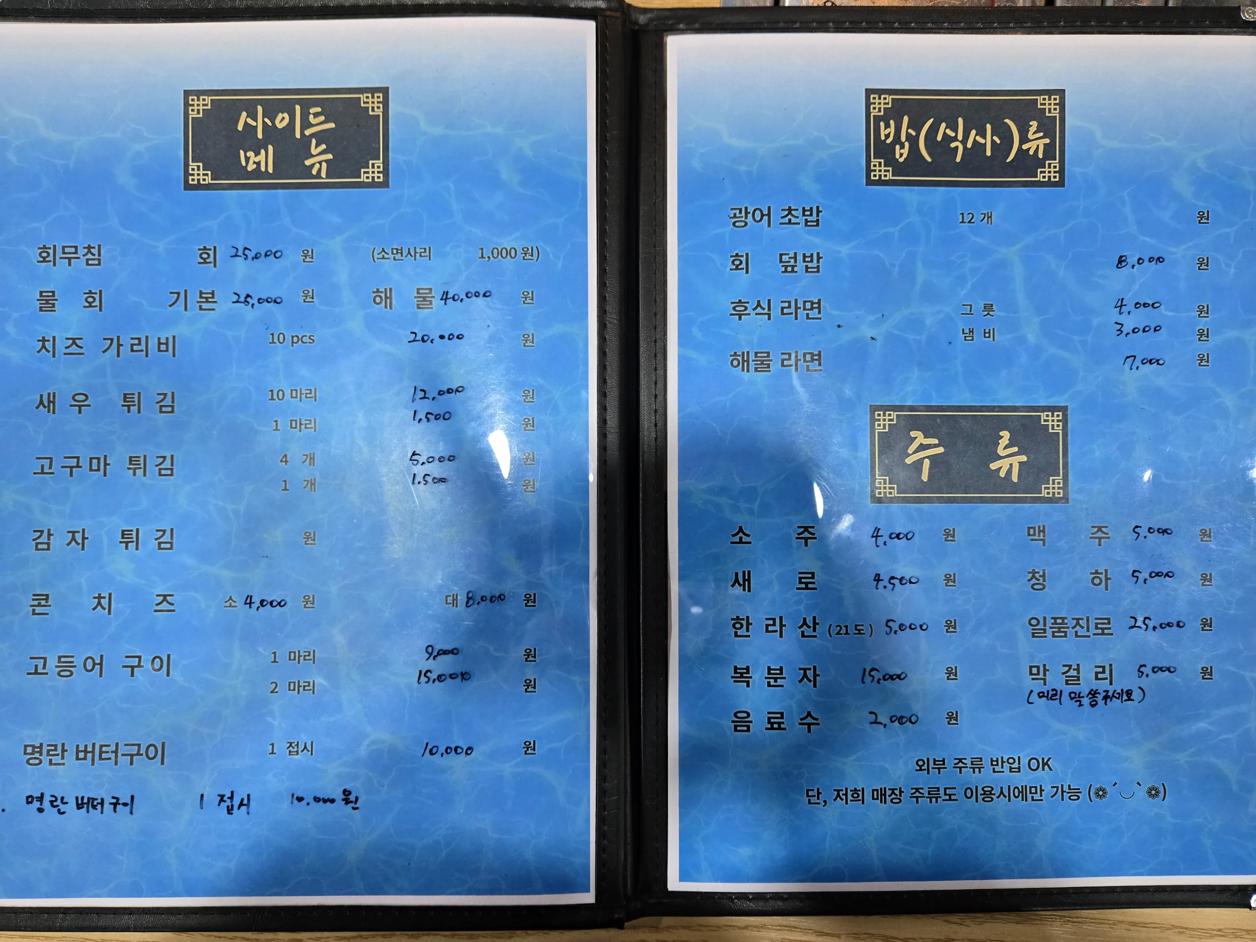 사이드
메 뉴
회무침 회 25,000 원 (소면사리 1,000 원)
물 회 기본 25,000 원 해 물 40,000 원
치즈 가리비 10 pcs 20,000 원
새 우 튀 김 10 마리 12,000 원
1 마리 1,500 원
고구마 튀김 4 개 5,000 원
1 개 1,500 원
감 자 튀 김 원
콘 치 즈 소 4,000 원 대 8,000 원
고등어 구이 1 마리 9,000 원
2 마리 15,000 원
명란 버터구이 1 접시 10,000 원
. 명란 버터구이 1 접시 10,000원
밥(식사)류
광어 초밥 12 개 원
회 덮밥 8,000 원
후식 라면 그 릇 4,000 원
냄 비 3,000 원
해물 라면 7,000 원
주 류
소 주 4,000 원 맥 주 5,000 원
새 로 4,500 원 청 하 5,000 원
한 라 산 (21도) 5,000 원 일품진로 25,000 원
복 분 자 15,000 원 막 걸 리 5,000 원
(미리 말씀주세요)
음 료 수 2,000 원
외부 주류 반입 OK
단, 저희 매장 주류도 이용시에만 가능 (❁´◡`❁)